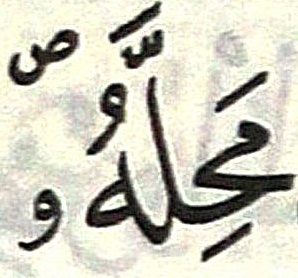 مَحِلَّهُۥ ص